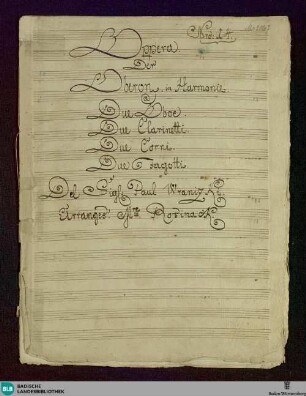 L'Oppera
Der
Oberon. in Harmonie
a
Due Oboe.
Due Clarinetti.
Due Corni.
Due Fagotti
Del Sigre Paul Wranizky
Arranges Rosinack
BLB BADISCHE
LANDESBIBLIOTHEK
Baden-Württemberg